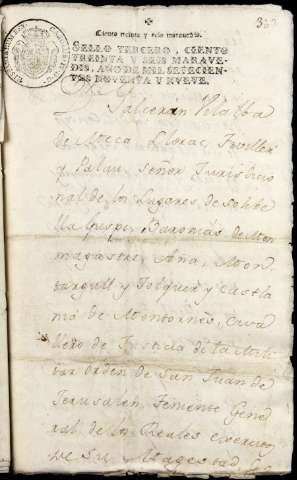 Ciento treinta y seis maravedis.
SELLO TERCERO, CIENTO
TREINTA Y SEIS MARAVE-
DIS, AÑO DE MIL SETECIEN-
TOS NOVENTA Y NUEVE.
Galceran Vilalba
de Meca, Llorac, Juviller
y Palau, Señor Jurisdiccio
nal de los Lugares de
Baronias de Mon
magastre, Aña, Mon
bargull y Tolquer y Castla
nio de Montornès, Cava
llero de Justicia de la Mili
tar orden de San Juan de
Jerusalen, Teniente Gene
ral de los Reales exercitos
de Su Magestad,